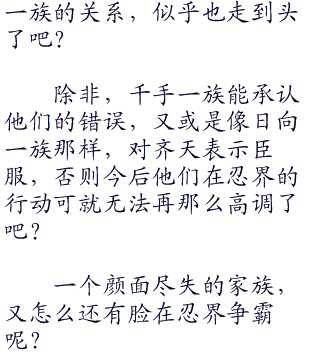 一族的关系，似乎也走到头
了吧？
除非，千手一族能承认
他们的错误，又或是像日向
一族那样，对齐天表示臣
服，否则今后他们在忍界的
行动可就无法再那么高调了
吧？
一个颜面尽失的家族，
又怎么还有脸在忍界争霸
呢？